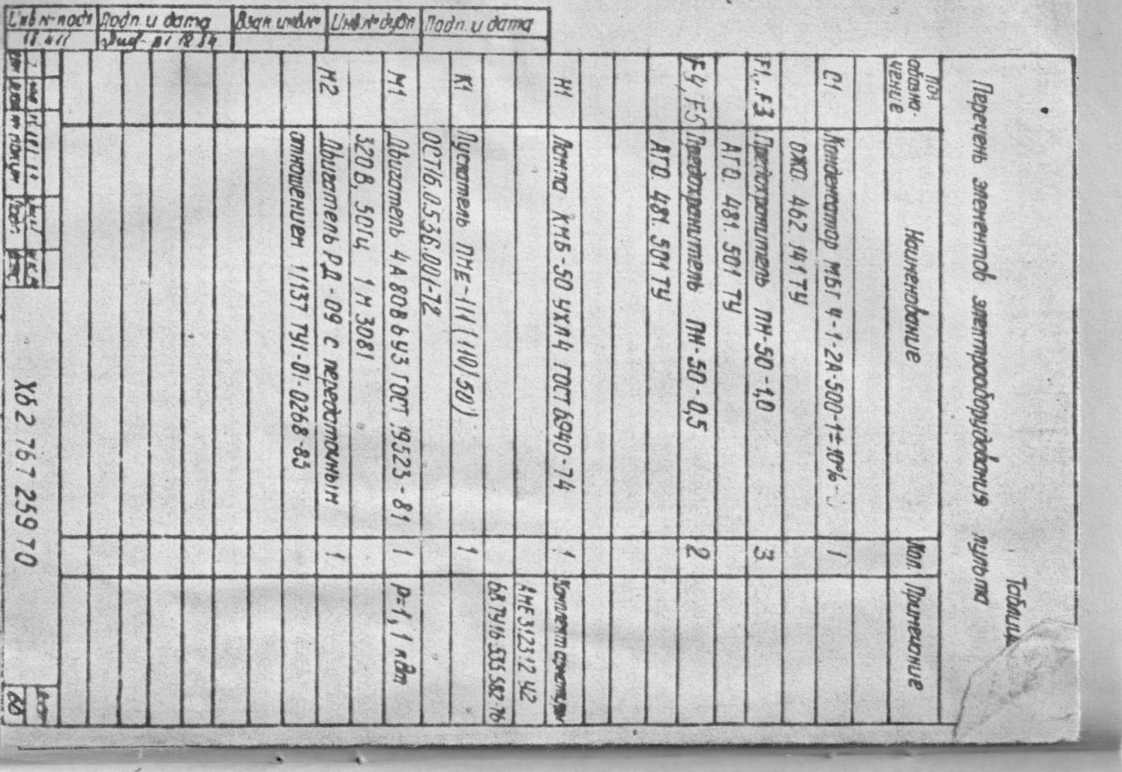 Таблица
Перечень элементов электрооборудования пульта
Поз обозна- чение Наименование Кол. Примечание
C1 Конденсатор МБГЧ-1-2А-500-1±10% 1
ОЖО. 462 141 ТУ
F1...F3 Предохранитель ПН-50-1,0 3
АГО. 481. 501 ТУ
F4, F5 Предохранитель ПН-50-0,5 2
АГО. 481. 501 ТУ
H1 Лампа КМ6-50 УХЛ4 ГОСТ 6940-74 1
АМЕ312312 У2
68 ТУ16 535 582-76
K1 Пускатель ПМЕ-111 (110/50) 1
ОСТ16.0.536.001-72
M1 Двигатель 4А80В6У3 ГОСТ 19523-81 1 P=1,1 кВт
320В, 50Гц 1М3081
M2 Двигатель РД-09 с передаточным 1
отношением 1/137 ТУ1-01-0268-83
Х62 767 259 ТО
Лист
60
Инв № подл Подп. и дата Взам. инв № Инв № дубл Подп. и дата